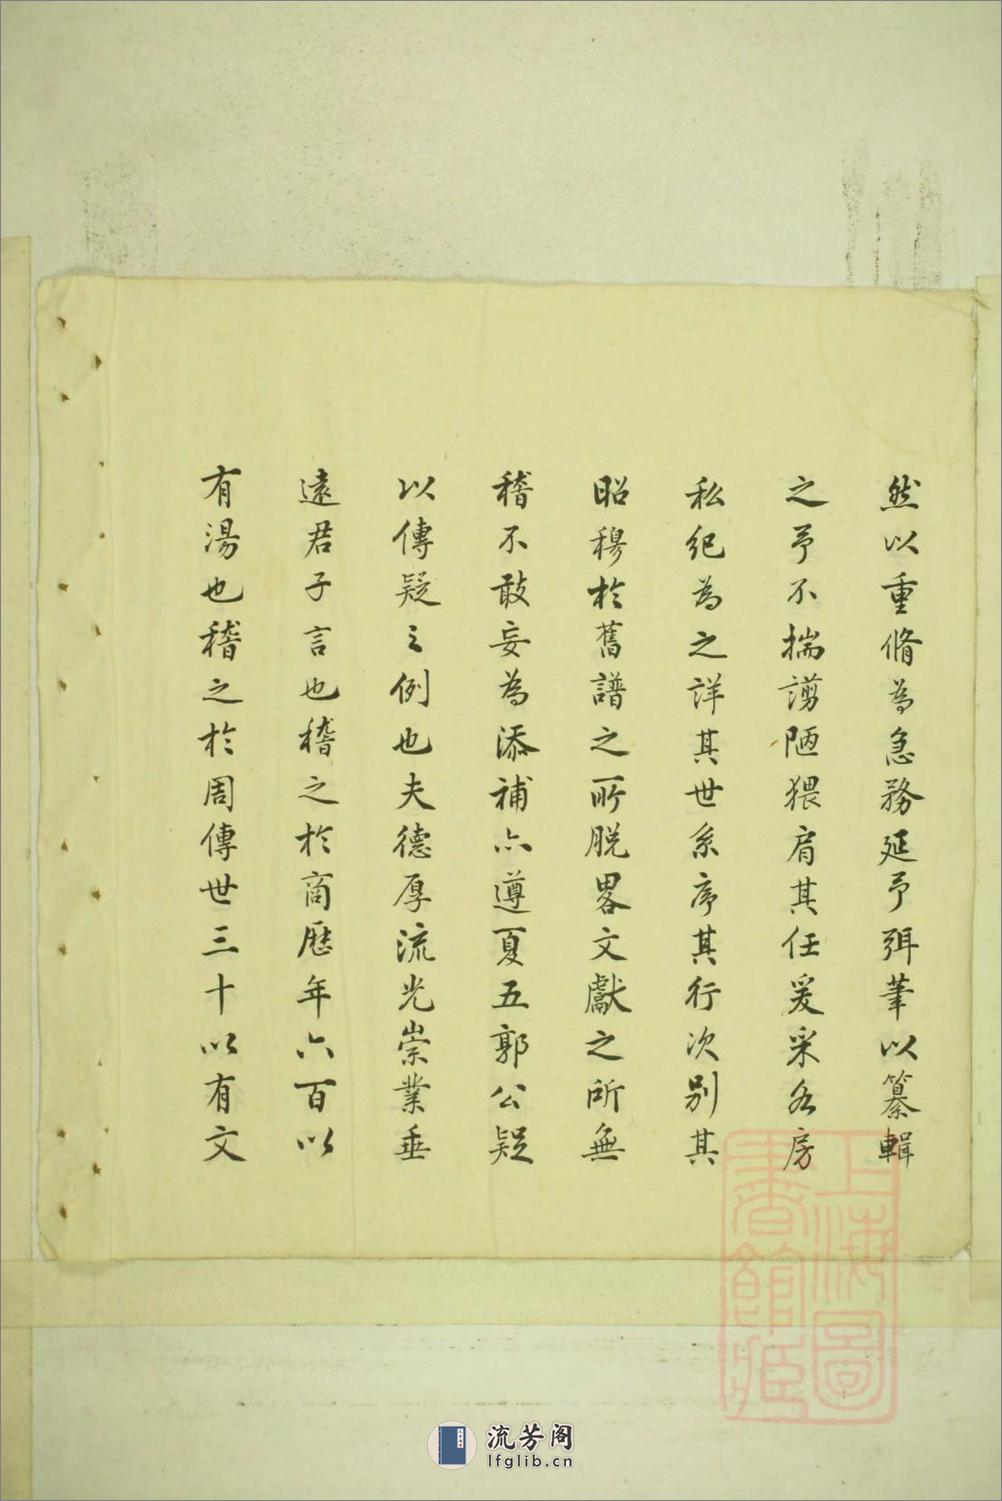 然以重脩為急務延予弭筆以纂輯
之予不揣謭陋猥肩其任爰采各房
私紀為之詳其世系序其行次別其
昭穆於舊譜之所脫畧文獻之所無
稽不敢妄為添補亦遵夏五郭公疑
以傳疑之例也夫德厚流光崇業垂
遠君子言也稽之於商歷年六百以
有湯也稽之於周傳世三十以有文
上海圖
書館藏
流芳阁
lfglib.cn